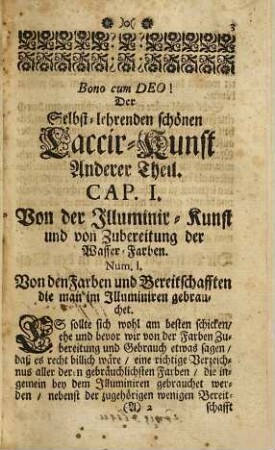 3
Bono cum DEO!
Der
Selbst-lehrenden schönen
Laccir-Kunst
Anderer Theil.
CAP. I.
Von der Illuminir-Kunst
und von Zubereitung der
Wasser-Farben.
Num. I.
Von den Farben und Bereitschafften
die man im Illuminiren gebrau-
chet.
ES sollte sich wohl am besten schicken/
ehe und bevor wir von der Farben Zu-
bereitung und Gebrauch etwas sagen/
daß es recht billich wäre / eine richtige Verzeich-
nus aller deren gebräuchlichsten Farben / die in-
gemein bey dem Illuminiren gebrauchet wer-
den / nebenst der zugehörigen wenigen Bereit-
(A) 2 schafft